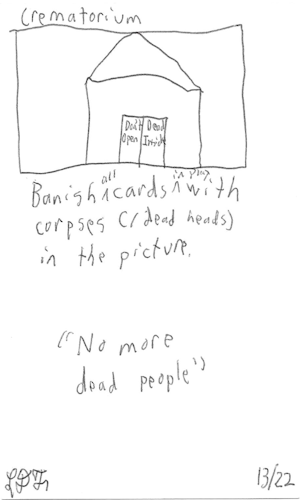 Crematorium
Don't Dead
Open Inside
Banish all cards in play with
corpses (/dead heads)
in the picture.
"No more
dead people"
13/22